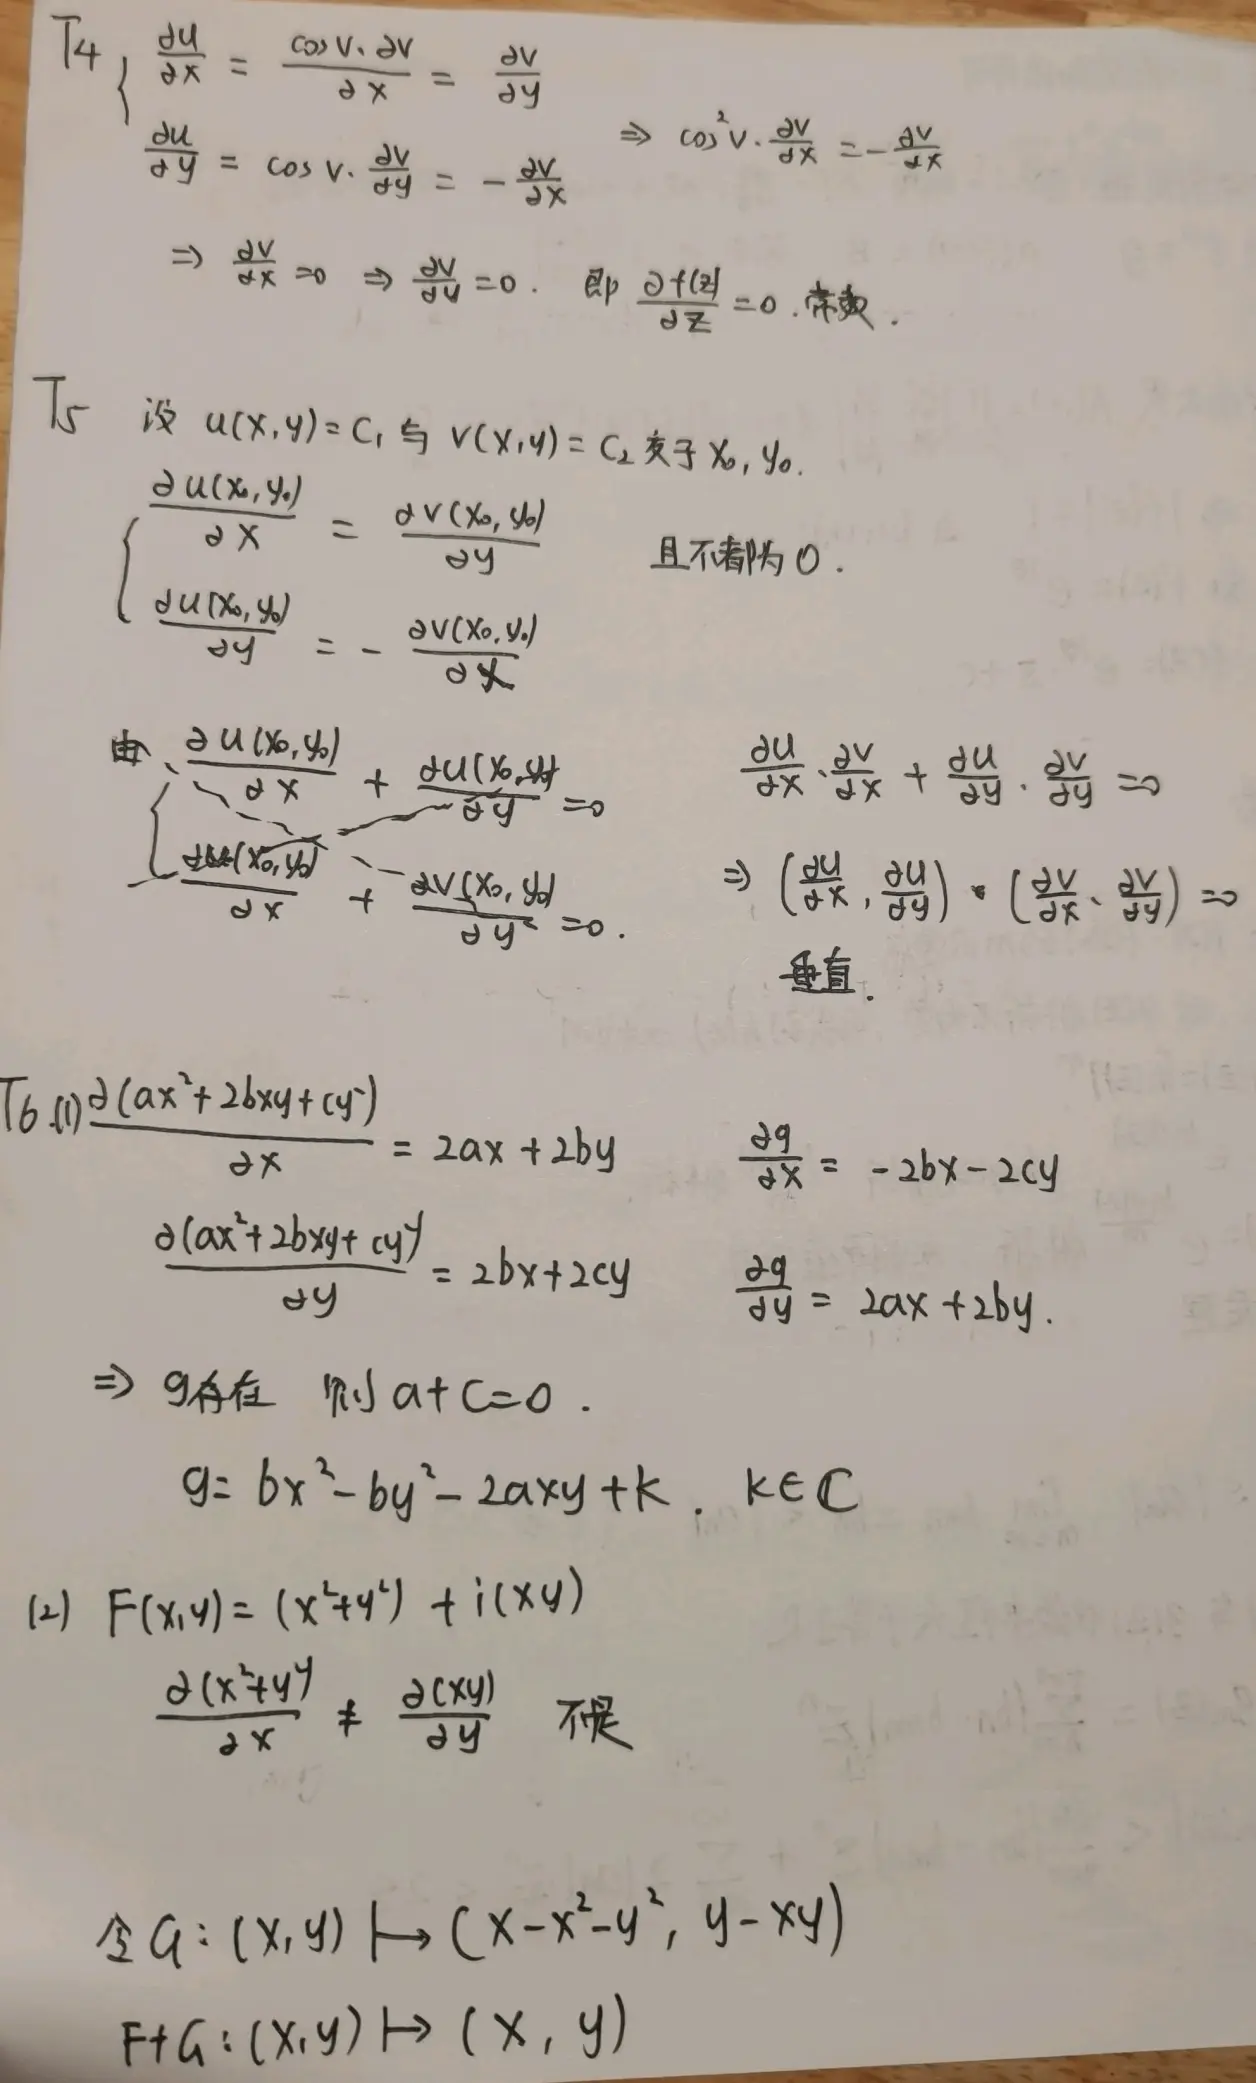 T4 { ∂u/∂x = cos v·∂v/∂x = ∂v/∂y
∂u/∂y = cos v·∂v/∂y = -∂v/∂x ⇒ cos²v·∂v/∂x = -∂v/∂x
⇒ ∂v/∂x =0 ⇒ ∂v/∂y =0. 即 ∂f(z)/∂z =0. 常数.
T5 设 u(x,y)=C₁与 v(x,y)=C₂交于 x₀,y₀.
{ ∂u(x₀,y₀)/∂x = ∂v(x₀,y₀)/∂y 且不都为0.
∂u(x₀,y₀)/∂y = -∂v(x₀,y₀)/∂x
由 { ∂u(x₀,y₀)/∂x + ∂u(x₀,y₀)/∂y =0
∂u/∂x·∂v/∂x + ∂u/∂y·∂v/∂y =0
(x₀,y₀)/∂x + ∂v(x₀,y₀)/∂y =0.
⇒ (∂u/∂x, ∂u/∂y)·(∂v/∂x、∂v/∂y)=0
垂直.
T6.(1) ∂(ax²+2bxy+cy²)/∂x = 2ax+2by ∂g/∂x = -2bx-2cy
∂(ax²+2bxy+cy²)/∂y = 2bx+2cy ∂g/∂y = 2ax+2by.
⇒ g存在 则 a+c=0.
g= bx²-by²-2axy+k. k∈C
(2) F(x,y)=(x²+y²)+i(xy)
∂(x²+y²)/∂x ≠ ∂(xy)/∂y 不是
令G:(x,y)↦(x-x²-y², y-xy)
F+G:(x,y)↦(x,y)